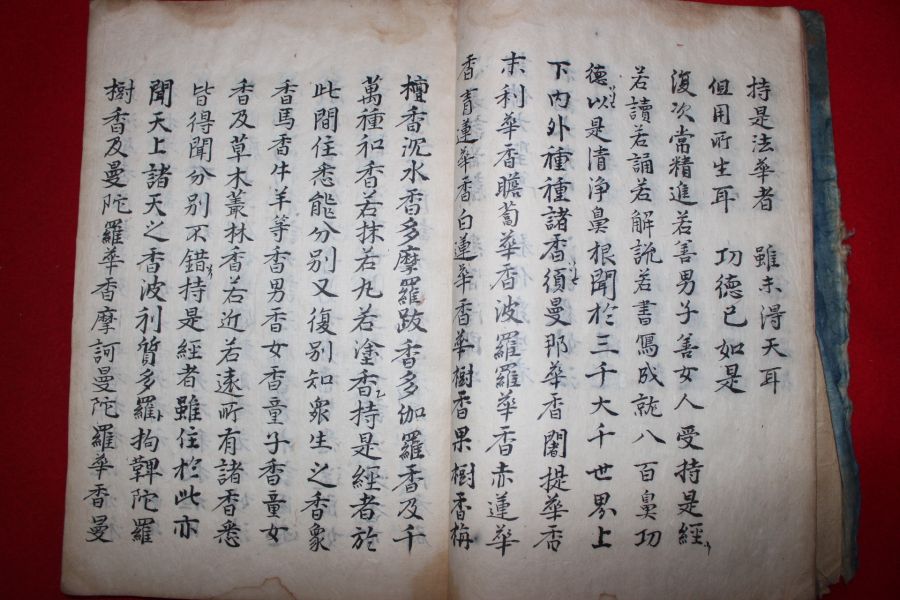 持是法華者　雖未得天耳
但用所生耳　功德已如是
復次常精進若善男子善女人受持是經
若讀若誦若解說若書寫成就八百鼻功
德以是清淨鼻根聞於三千大千世界上
下內外種種諸香須曼那華香闍提華香
末利華香瞻蔔華香波羅羅華香赤蓮華
香青蓮華香白蓮華香華樹香果樹香栴
檀香沉水香多摩羅跋香多伽羅香及千
萬種和香若抹若丸若塗香持是經者於
此間住悉能分別又復別知眾生之香象
香馬香牛羊等香男香女香童子香童女
香及草木叢林香若近若遠所有諸香悉
皆得聞分別不錯持是經者雖住於此亦
聞天上諸天之香波利質多羅拘鞞陀羅
樹香及曼陀羅華香摩訶曼陀羅華香曼